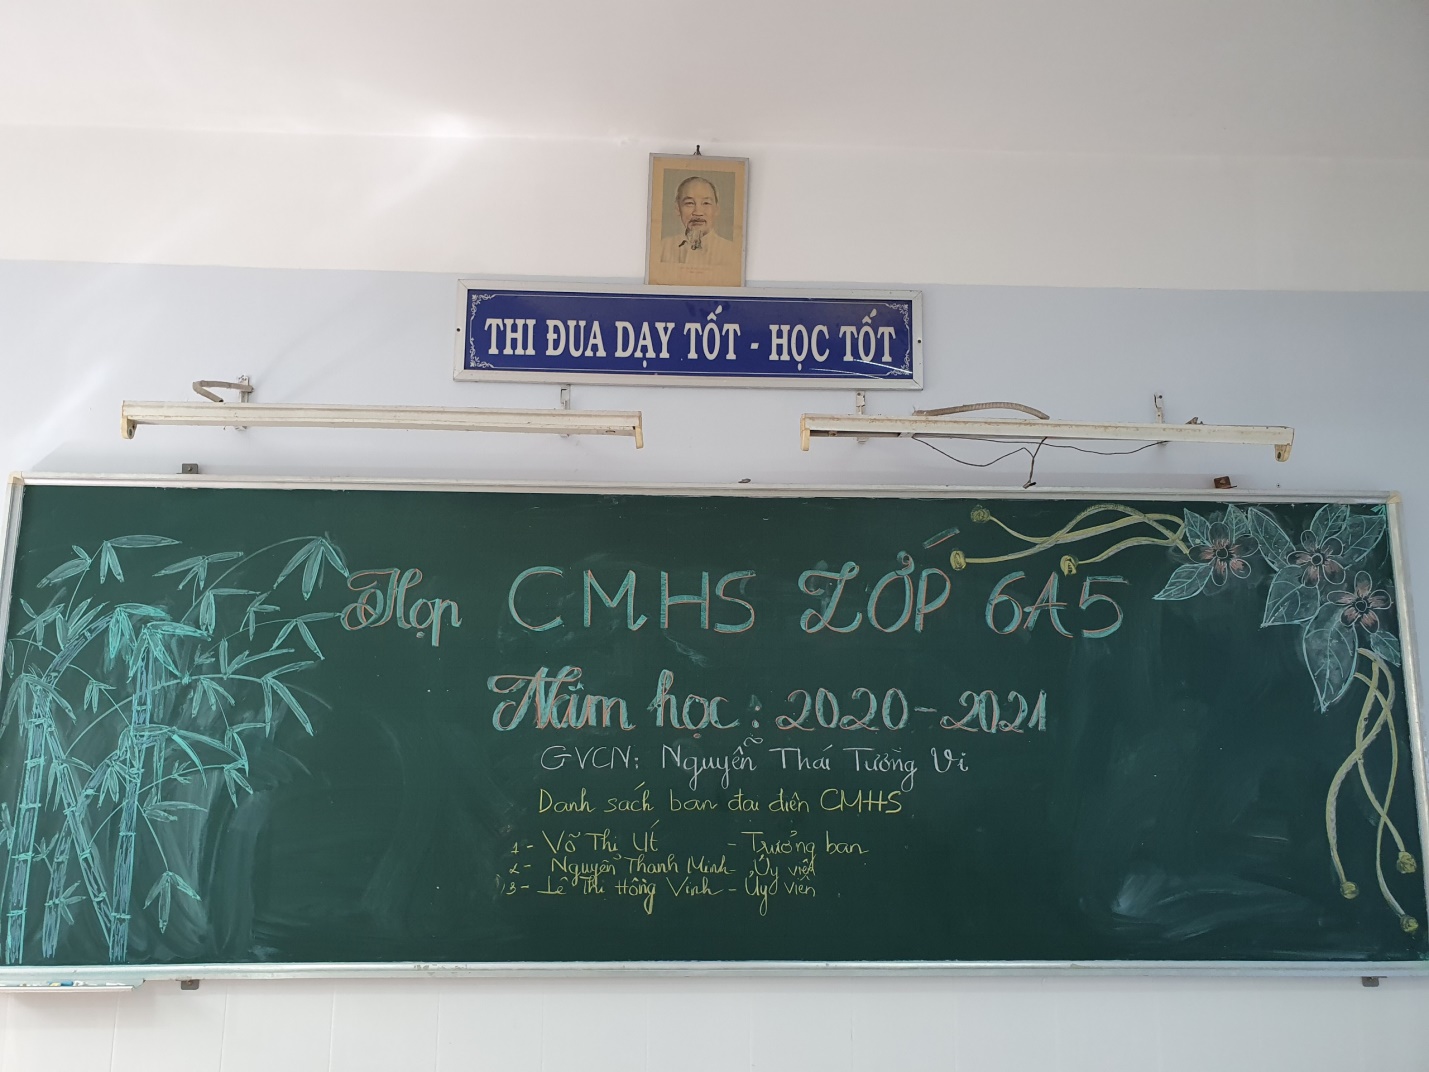 THI ĐUA DẠY TỐT - HỌC TỐT
Họp CMHS LỚP 6A5
Năm học: 2020-2021
GVCN: Nguyễn Thái Tường Vi
Danh sách ban đại diện CMHS
1- Võ Thị Út - Trưởng ban
2- Nguyễn Thanh Minh - Ủy viên
3- Lê Thị Hồng Vinh - Ủy viên